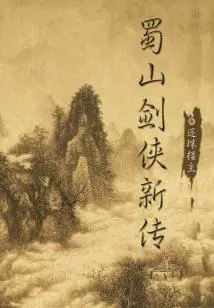 蜀山剑侠新传
还珠楼主